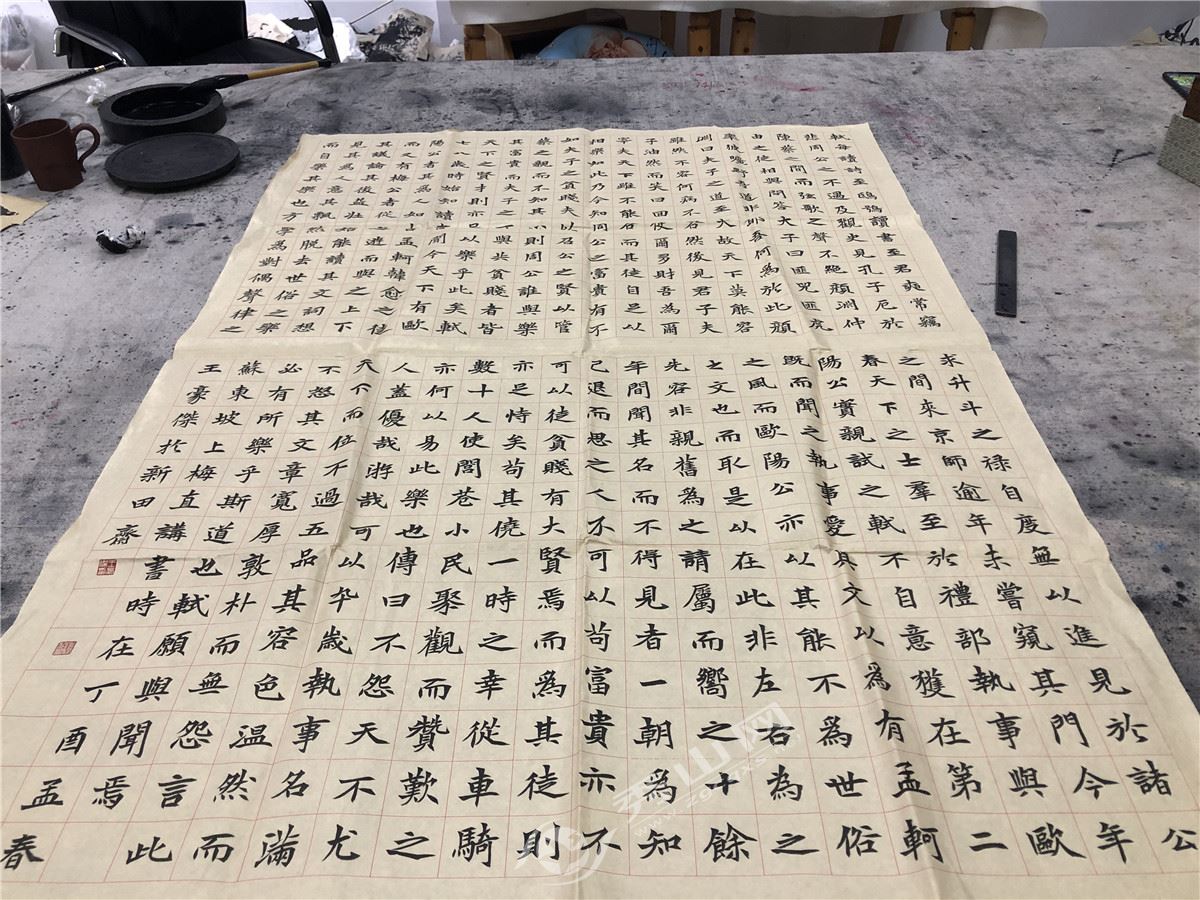 軾每讀詩至鴟鴞讀書至君奭常竊
悲周公之不遇及觀史見孔子厄於
陳蔡之間而弦歌之聲不絕顏淵仲
由之徒相與問答夫子曰匪兕匪虎
率彼曠野吾道非耶吾何為於此顏
淵曰夫子之道至大故天下莫能容
雖然不容何病不容然後見君子夫
子油然而笑曰回使爾多財吾為爾
宰夫天下雖不能容而其徒自足以
相樂如此乃今知周公之富貴有不
如夫子之貧賤夫以召公之賢以管
蔡之親而不知其心則周公誰與樂
其富貴而夫子之所與共貧賤者皆
天下之賢才則亦足以樂乎此矣軾
七八歲時始知讀書聞今天下有歐
陽公者其為人如古孟軻韓愈之徒
而又有梅公者從之遊而與之上下
其議論其後益壯始能讀其文詞想
見其為人意其飄然脫去世俗之樂
而自樂其樂也方學為對偶聲律之
求升斗之祿自度無以進見於諸公
之間來京師逾年未嘗窺其門今年
春天下之士羣至於禮部執事與歐
陽公實親試之軾不自意獲在第二
既而聞之執事愛其文以為有孟軻
之風而歐陽公亦以其能不為世俗
之文也而取是以在此非左右為之
先容非親舊為之請屬而嚮之十餘
年間聞其名而不得見者一朝為知
己退而思之人不可以苟富貴亦不
可以徒貧賤有大賢焉而為其徒則
亦足恃矣苟其僥一時之幸從車騎
數十人使閭巷小民聚觀而贊歎之
亦何以易此樂也傳曰不怨天不尤
人蓋優哉游哉可以卒歲執事名滿
天下而位不過五品其容色温然而
不怒其文章寬厚敦朴而無怨言此
必有所樂乎斯道也軾願與聞焉
蘇東坡上梅直講書時在丁酉孟春
王豪傑於新田齋